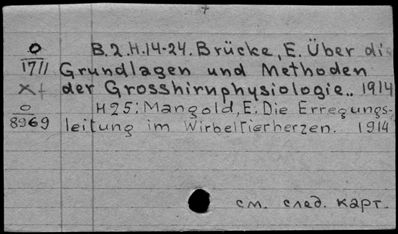 O B.2.H.14-24. Brücke, E. Über die
1711 Grundlagen und Methoden
X+ der Grosshirnphysiologie.. 1914
O H25: Mangold, E: Die Erregungs-
8969 leitung im Wirbeltierherzen. 1914
см. след. карт.